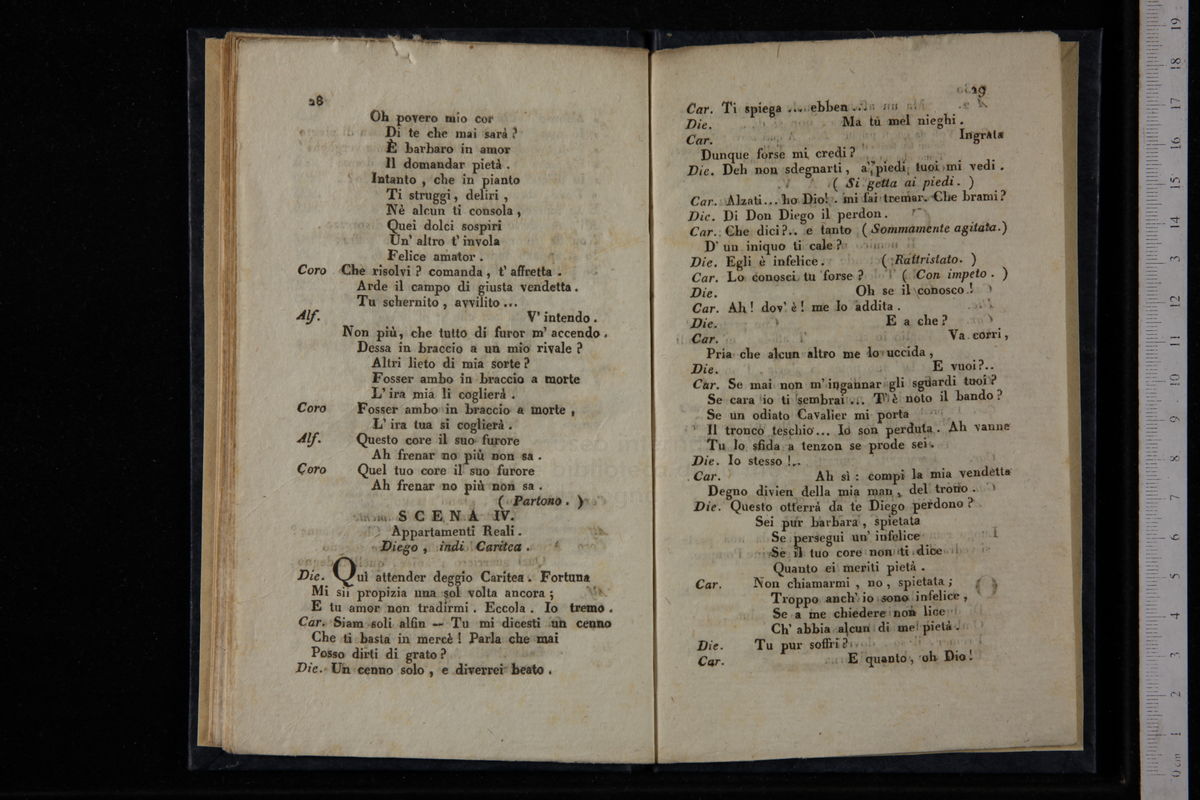 28
Oh povero mio cor
Di te che mai sarà ?
È barbaro in amor
Il domandar pietà .
Intanto , che in pianto
Ti struggi, deliri ,
Nè alcun ti consola ,
Quei dolci sospiri
Un' altro t' invola
Felice amator .
Coro Che risolvi ? comanda , t' affretta .
Arde il campo di giusta vendetta .
Tu schernito , avvilito ...
Alf. V' intendo .
Non più, che tutto di furor m' accendo .
Dessa in braccio a un mio rivale ?
Altri lieto di mia sorte ?
Fosser ambo in braccio a morte
L' ira mia li coglierà .
Coro Fosser ambo in braccio a morte ,
L' ira tua si coglierà .
Alf. Questo core il suo furore
Ah frenar no più non sa .
Coro Quel tuo core il suo furore
Ah frenar no più non sa .
( Partono . )
SCENA IV.
Appartamenti Reali .
Diego , indi Caritea .
Die. Quì attender deggio Caritea . Fortuna
Mi sii propizia una sol volta ancora ;
E tu amor non tradirmi . Eccola . Io tremo .
Car. Siam soli alfin — Tu mi dicesti un cenno
Che ti basta in mercè ! Parla che mai
Posso dirti di grato ?
Die. Un cenno solo , e diverrei beato .
29
Car. Ti spiega ... ebben ...
Die. Ma tù mel nieghi .
Car. Ingrata
Dunque forse mi credi ?
Die. Deh non sdegnarti , a' piedi tuoi mi vedi .
( Si getta ai piedi . )
Car. Alzati ... ho Dio! . mi fai tremar. Che brami ?
Die. Di Don Diego il perdon .
Car. Che dici ?.. e tanto ( Sommamente agitata.)
D' un iniquo ti cale ?
Die. Egli è infelice . ( Rattristato. )
Car. Lo conosci tu forse ? ( Con impeto . )
Die. Oh se il conosco !
Car. Ah ! dov' è ! me lo addita .
Die. E a che ?
Car. Va corri ,
Pria che alcun altro me lo uccida ,
Die. E vuoi ?..
Car. Se mai non m' ingannar gli sguardi tuoi ?
Se cara io ti sembrai ... T' è noto il bando ?
Se un odiato Cavalier mi porta
Il tronco teschio ... Io son perduta . Ah vanne
Tu lo sfida a tenzon se prode sei .
Die. Io stesso !..
Car. Ah sì : compi la mia vendetta
Degno divien della mia man , del trono .
Die. Questo otterrà da te Diego perdono ?
Sei pur barbara , spietata
Se persegui un' infelice
Se il tuo core non ti dice
Quanto ei meriti pietà .
Car. Non chiamarmi , no , spietata ;
Troppo anch' io sono infelice ,
Se a me chiedere non lice
Ch' abbia alcun di me pietà .
Die. Tu pur soffri ?
Car. E quanto , oh Dio !
0 cm 1 2 3 4 5 6 7 8 9 10 11 12 13 14 15 16 17 18 19